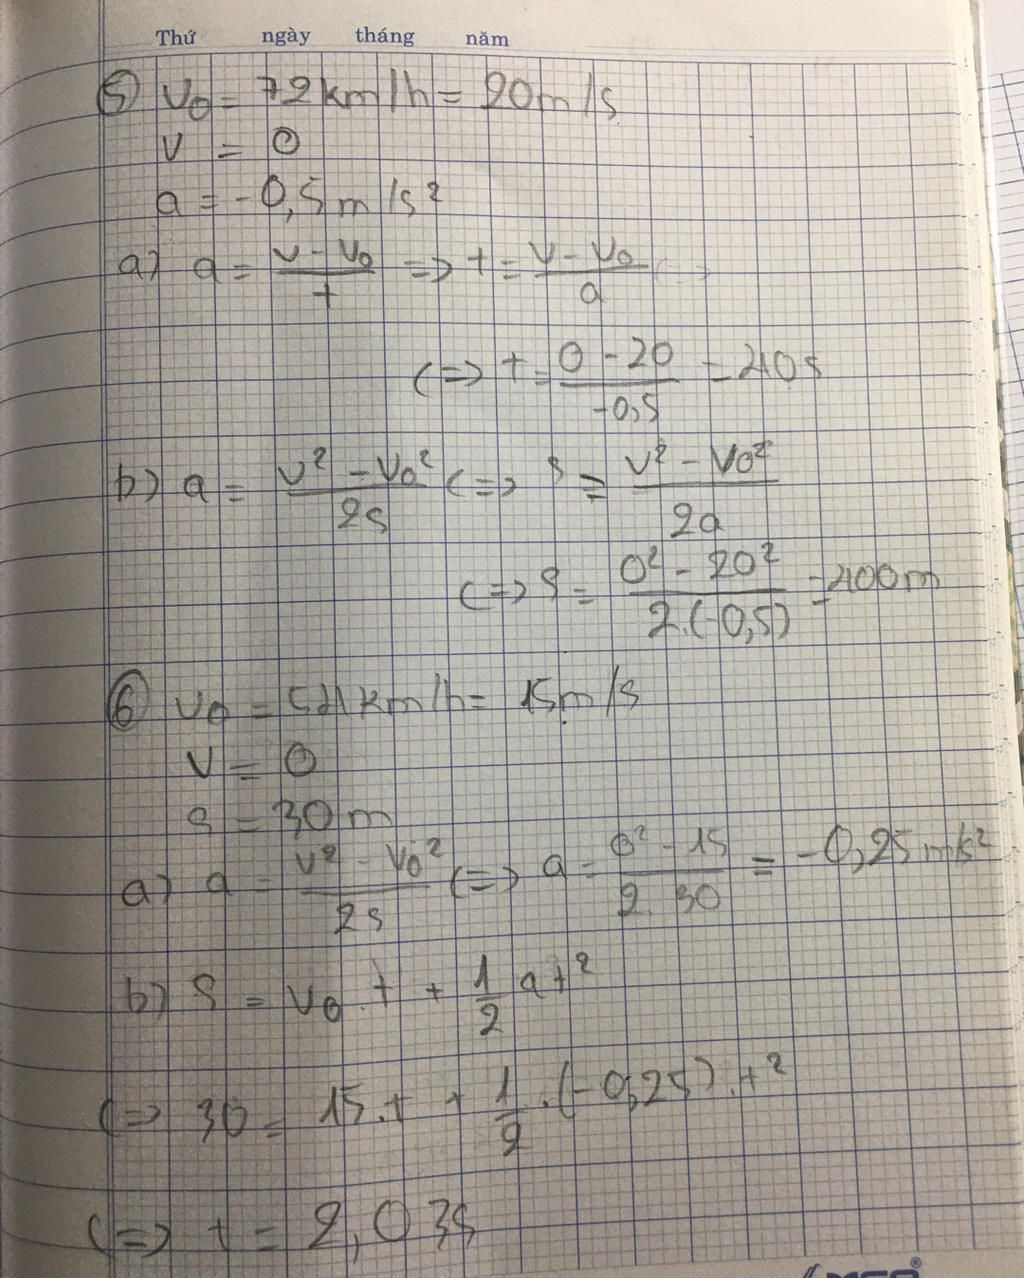 Thứ ngày tháng năm
5) v₀ = 72 km/h = 20 m/s
v = 0
a = -0,5 m/s²
a) a = (v - v₀)/t => t = (v - v₀)/a
<=> t = (0 - 20)/(-0,5) = 40s
b) a = (v² - v₀²)/(2s) <=> s = (v² - v₀²)/(2a)
<=> s = (0² - 20²)/(2.(-0,5)) = 400m
6) v₀ = 54km/h = 15m/s
v = 0
s = 30m
a) a = (v² - v₀²)/(2s) <=> a = (0² - 15)/(2.30) = -0,25 m/s²
b) s = v₀.t + 1/2 at²
<=> 30 = 15.t + 1/2.(-0,25).t²
<=> t = 2,03s